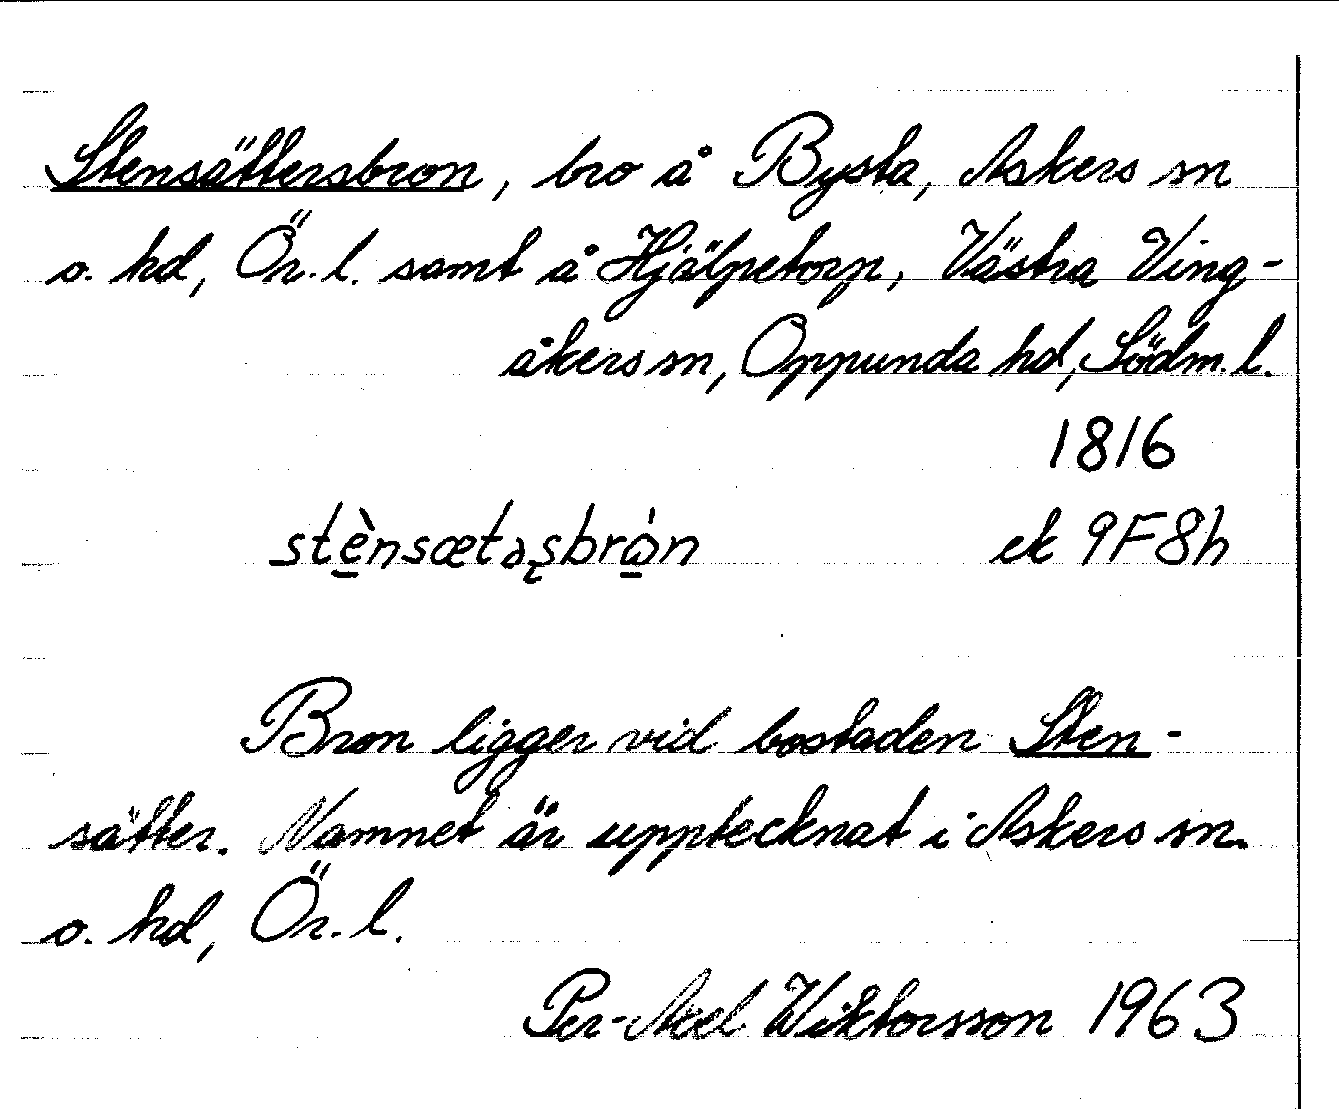 Stensättersbron, bro å Bysta, Askers sn
o. hd, Ör. l. samt å Hjälpetorp, Västra Ving-
åkers sn, Oppunda hd, Södm. l.
1816
stè̠nsætəʂbrὰ̠n ek 9F8h
Bron ligger vid bostaden Sten-
sätter. Namnet är upptecknat i Askers sn.
o. hd, Ör. l.
Per-Axel Wiktorsson 1963